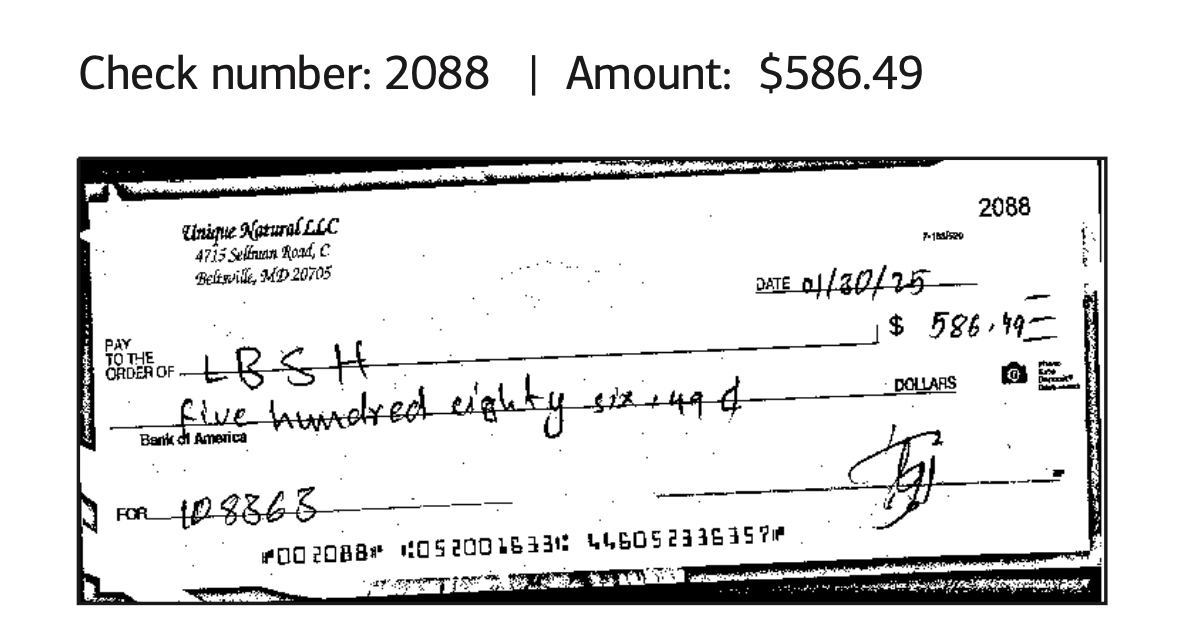 Check number: 2088 | Amount: $586.49
2088
Unique Natural LLC
4715 Sellman Road, C
Beltsville, MD 20705
DATE 01/30/25
PAY
TO THE
ORDER OF LBSH $ 586.49
five hundred eighty six . 49 ¢ DOLLARS
Photo
Safe
Deposit
Bank of America
FOR 108363
⑈002088⑈ ⑆052001633⑆ 446052336357⑈